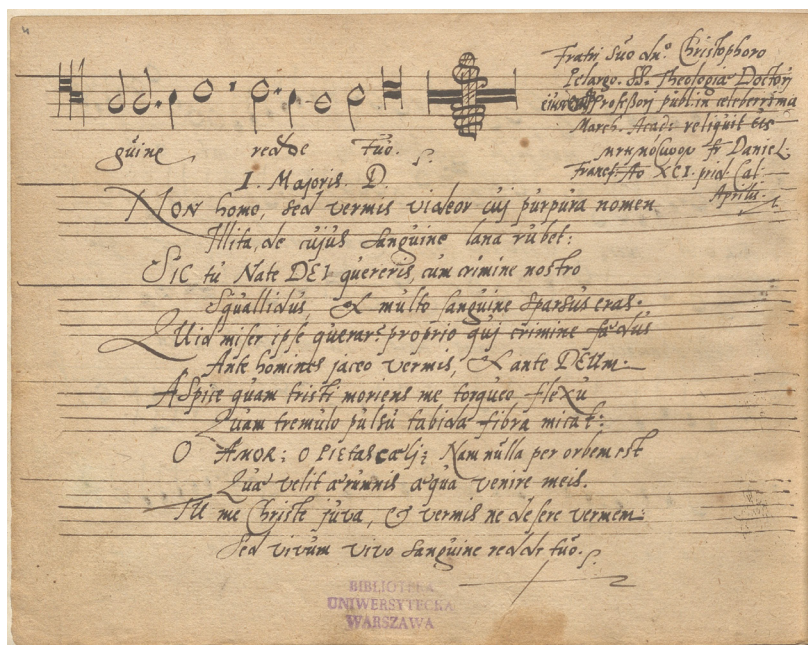 4
Fratri suo dn.° Christophoro
Pelargo. SS. Theologiæ Doctori
Professori publ. in celeberrima
March. Acad: reliquit ets
Fr Daniel.
guine redde tuo.
Francf. Ao XCI. prid. Cal
Aprilis.
I. Majoris. D.
NON homo, sed vermis videor cuj purpura nomen
Illita, de cujus sanguine lana rubet:
SIC tu Nate DEI quereris, cum crimine nostro
Squallidus, & multo sanguine sparsus eras.
QUid miser ipse querar? proprio quj crimine fædus
Ante homines jaceo vermis, & ante DEUm.
ASpice quam tristi moriens me torqueo flexu
Quam tremulo pulsu tabida fibra micat:
O AMOR; O PIEtas cælj; Nam nulla per orbem est
Quæ velit ærumnis æqua venire meis.
TU me Christe juva, & vermis ne desere vermem
Sed vivum vivo sanguine redde tuo.
BIBLIOTEKA
UNIWERSYTECKA
WARSZAWA